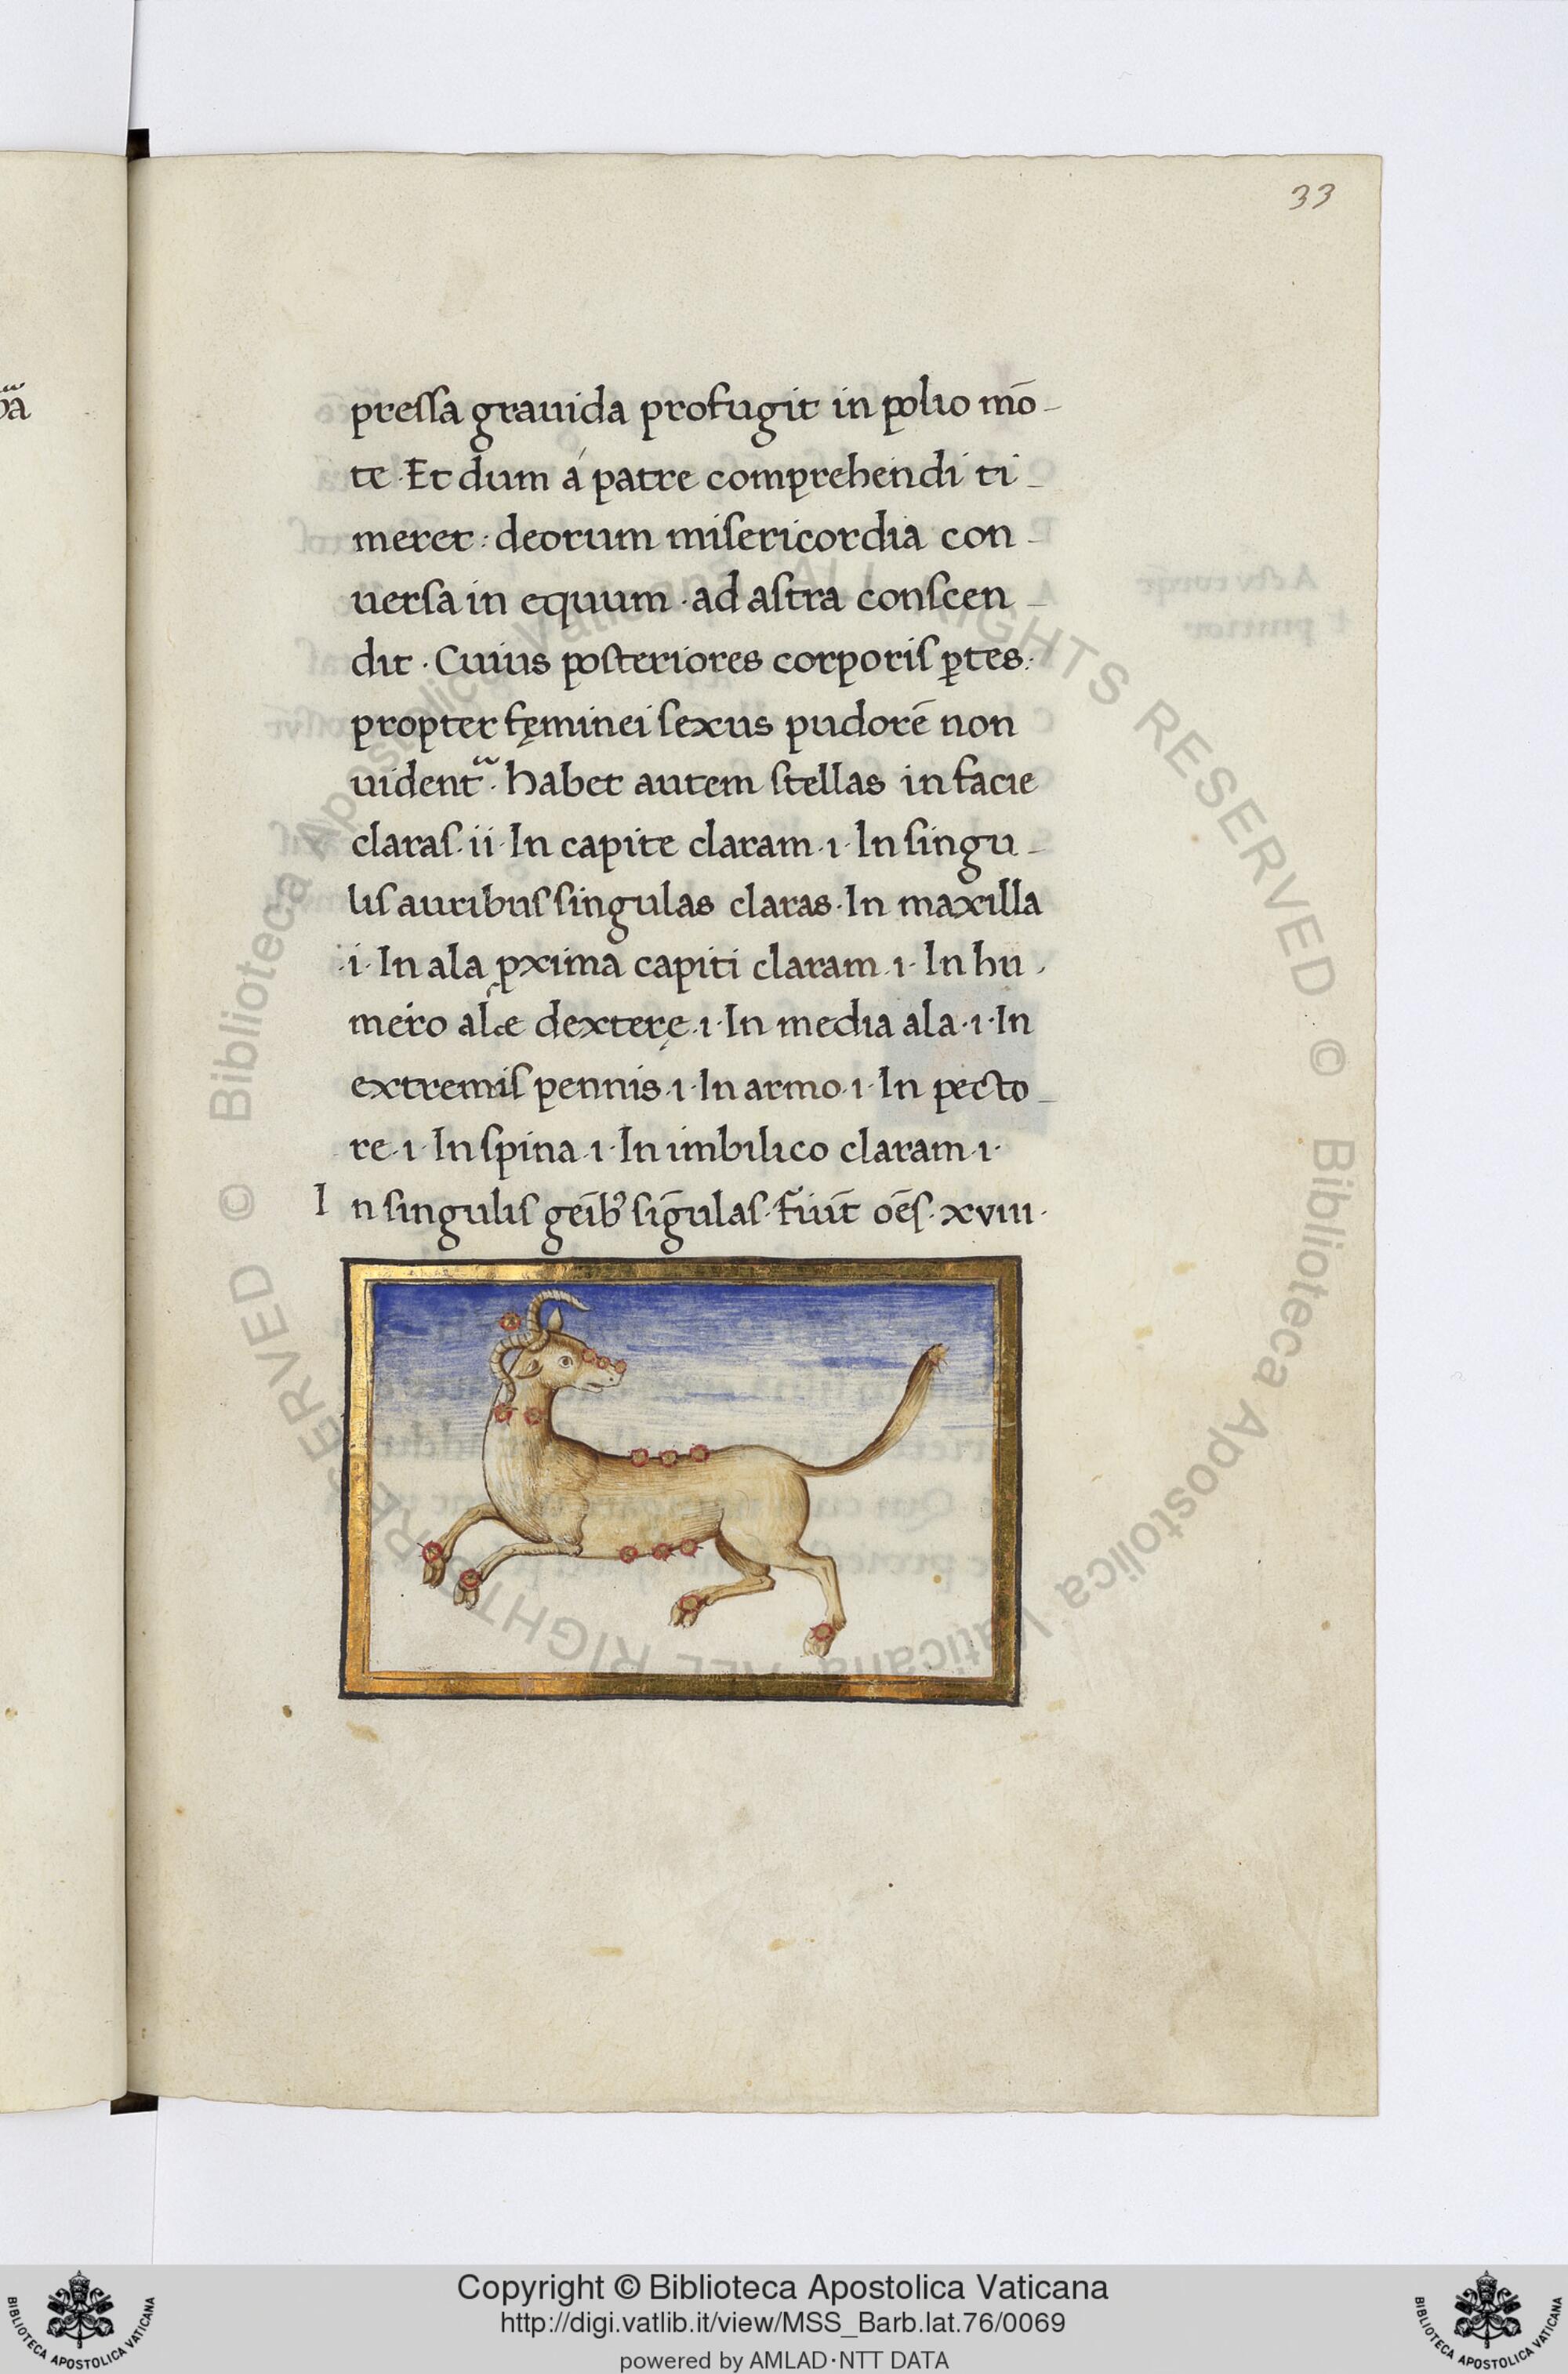 33
pressa grauida profugit in polio mō-
te. Et dum á patre comprehendi ti-
meret: deorum misericordia con-
uersa in equum. ad astra conscen-
dit. Cuius posteriores corporis ꝑtes.
propter fęminei sexus pudorē non
uident᷑. habet autem stellas in facie
claras. ii. In capite claram. 1. In singu-
lis auribus singulas claras. In maxilla
.i. In ala ꝓxima capiti claram. 1. In hu-
mero alae dexterę. 1. In media ala. 1. In
extremis pennis. 1. In armo. 1. In pecto-
re. 1. In spina. 1. In imbilico claram. 1.
In singulis geīb᷒ sīgulas. Fiūt oēs. xviii.
© Biblioteca Apostolica Vaticana ALL RIGHTS RESERVED
© Biblioteca Apostolica Vaticana ALL RIGHTS RESERVED
BIBLIOTECA APOSTOLICA VATICANA
Copyright © Biblioteca Apostolica Vaticana
http://digi.vatlib.it/view/MSS_Barb.lat.76/0069
powered by AMLAD·NTT DATA
BIBLIOTECA APOSTOLICA VATICANA